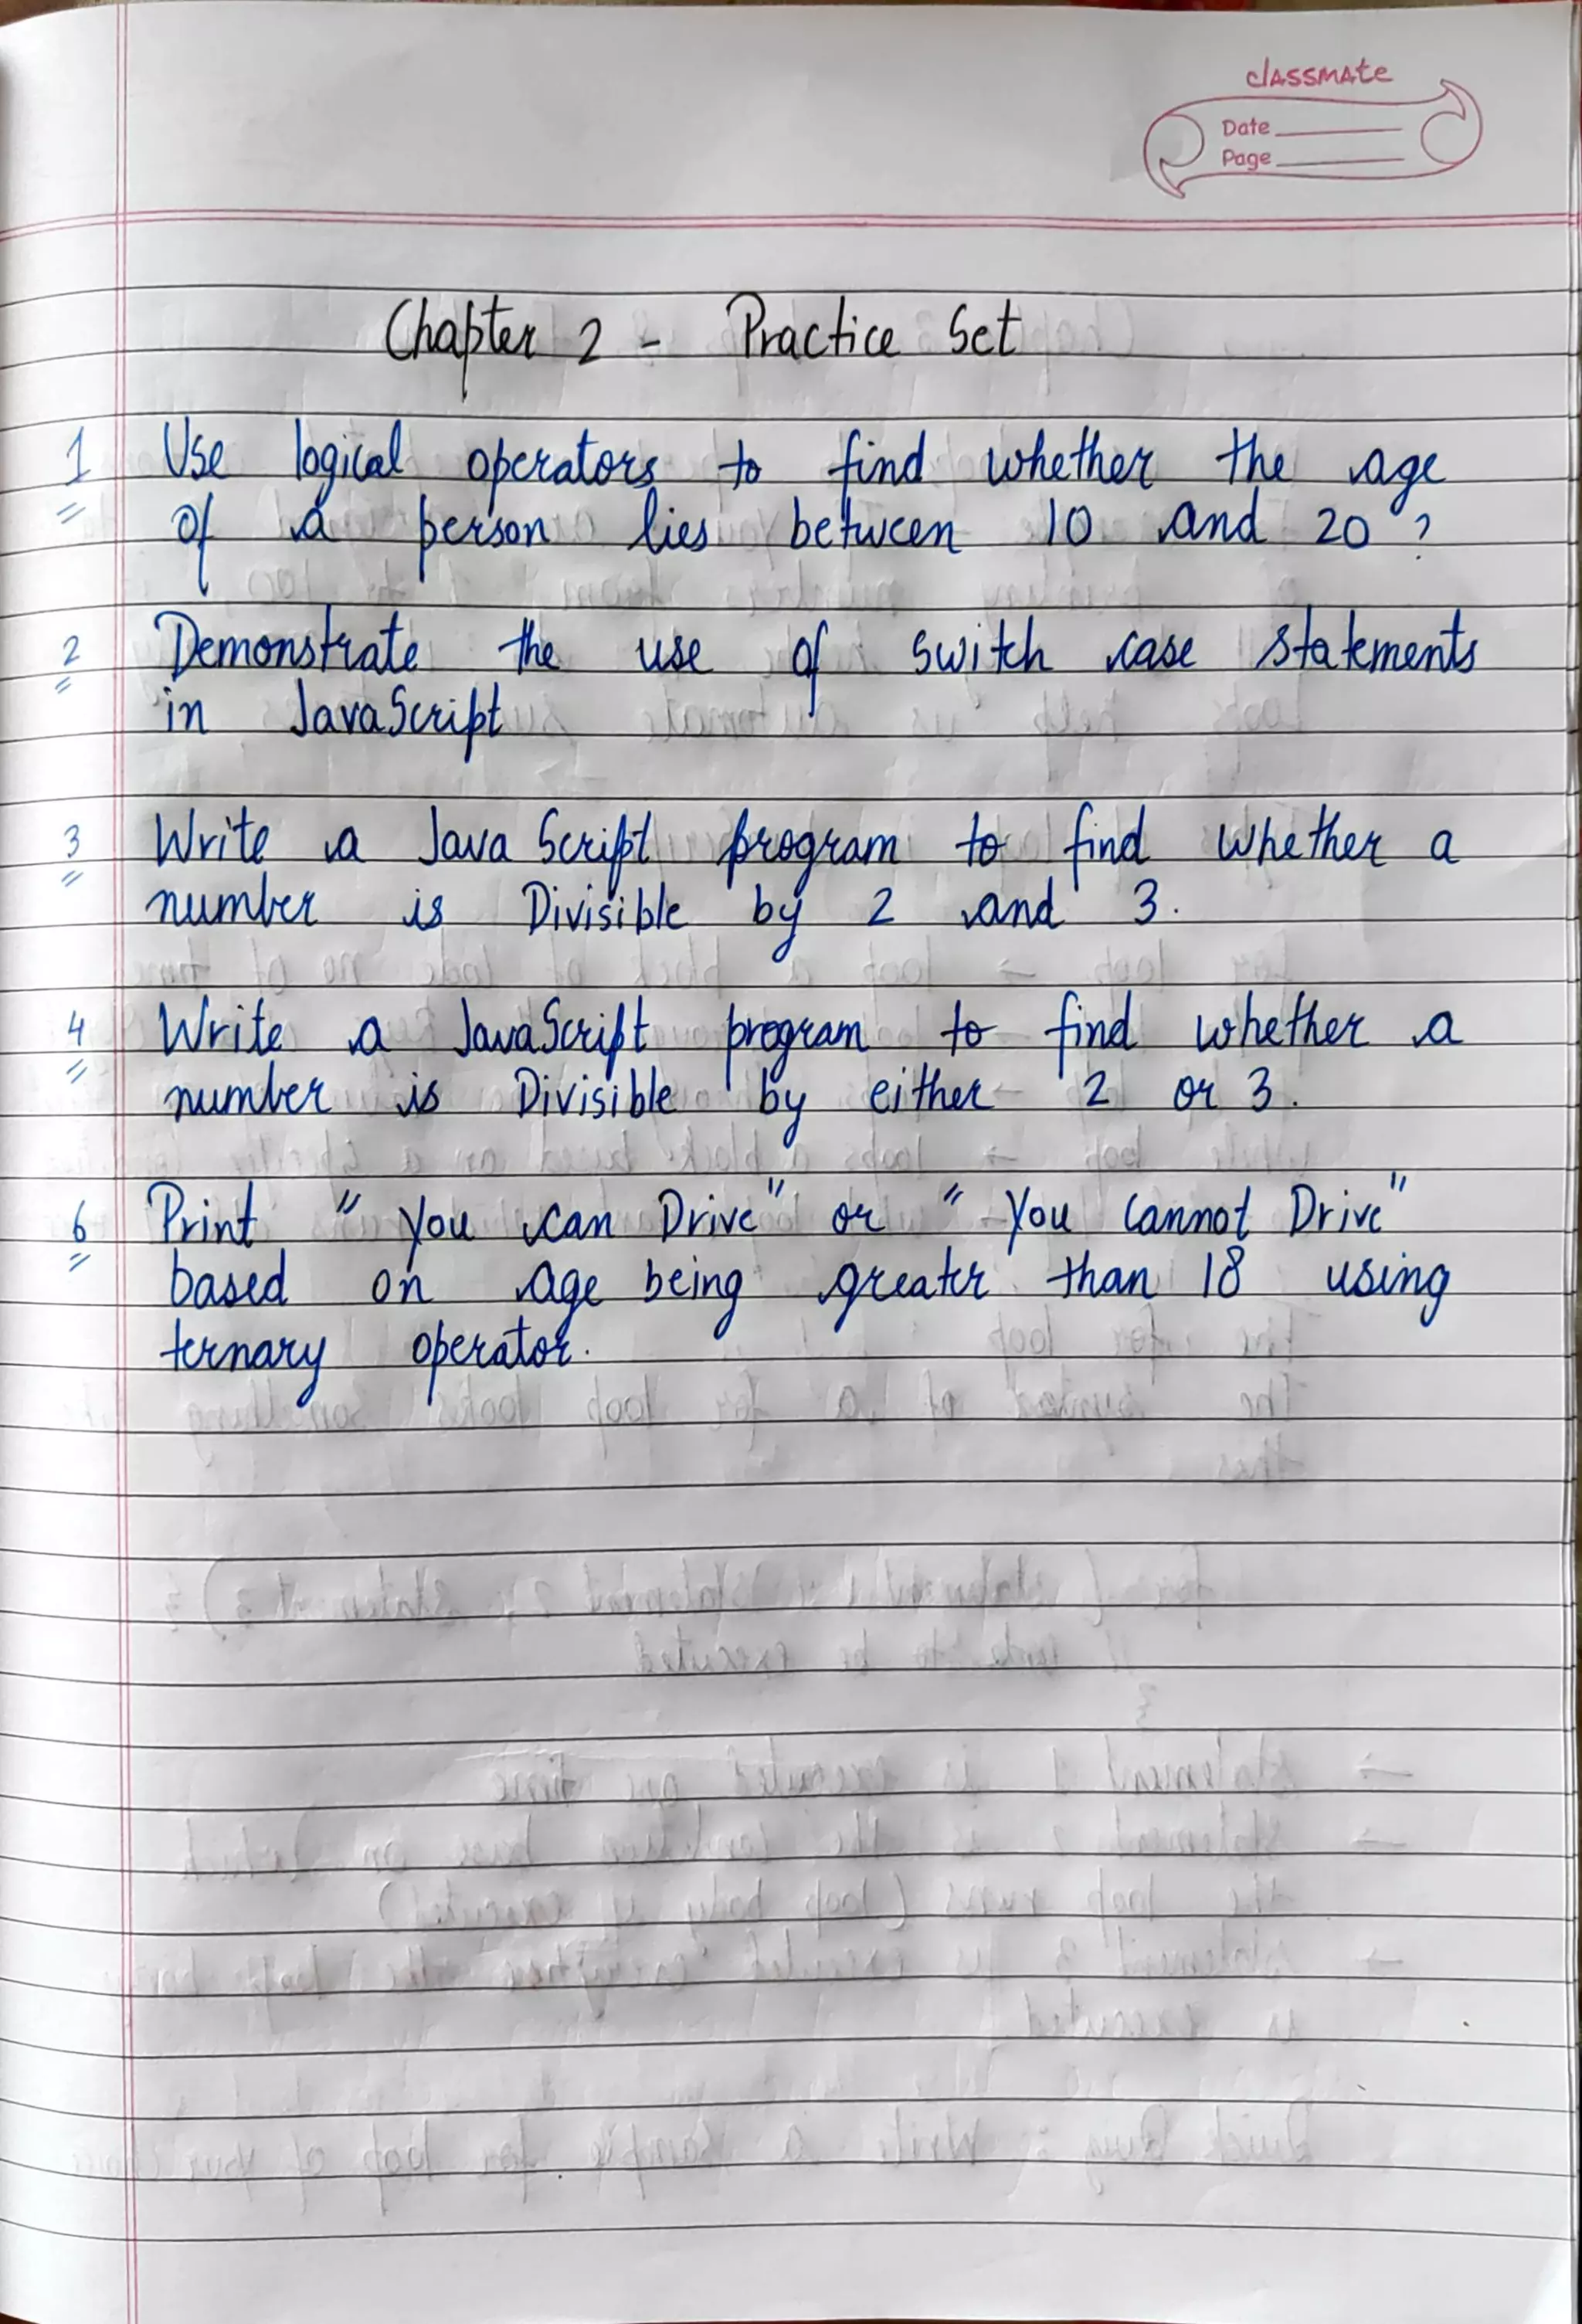 classmate
Date
Page
Chapter 2 - Practice Set
1 Use logical operators to find whether the age
of a person lies between 10 and 20 ?
2 Demonstrate the use of switch case statements
in JavaScript
3 Write a Java Script program to find whether a
number is Divisible by 2 and 3.
4 Write a JavaScript program to find whether a
number is Divisible by either 2 or 3.
6 Print " You can Drive" or " You cannot Drive"
based on age being greater than 18 using
ternary operator.